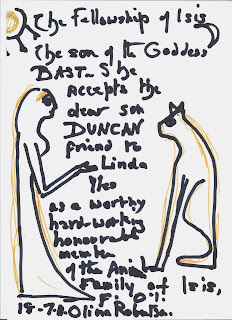 The Fellowship of Isis
The son of the Goddess
BAST_She
accepts the
dear son
DUNCAN
friend to
Linda
Iles
as a worthy
hard-working
honourable
member
of the Animal
Family of Isis,
F.O.I.
Olivia Robertson.